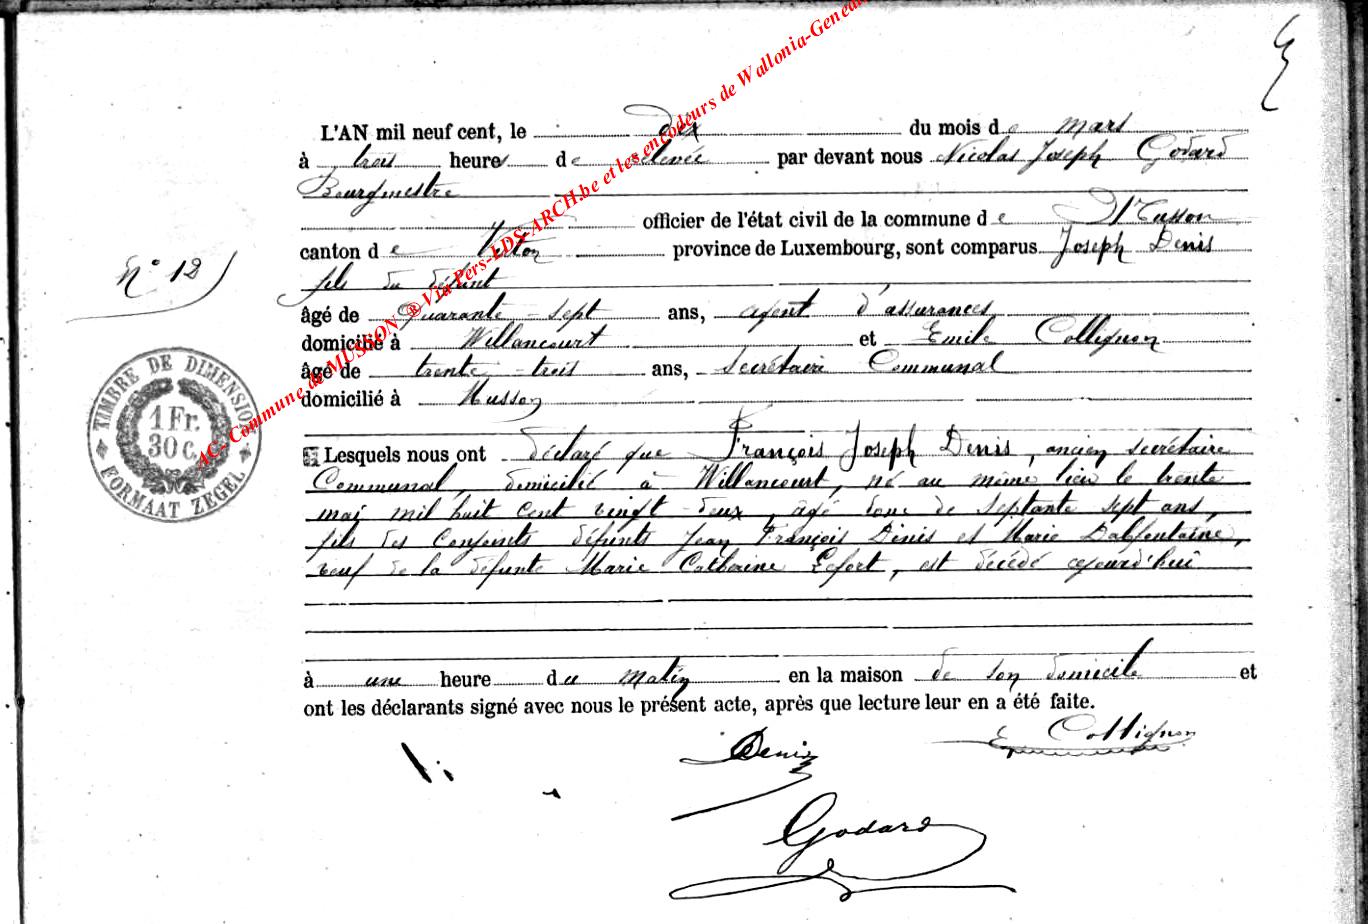 L'AN mil neuf cent, le dix du mois de mars
à trois heures de relevée par devant nous Nicolas Joseph Godard
Bourgmestre
officier de l'état civil de la commune de Musson
canton de Virton province de Luxembourg, sont comparus Joseph Denis
fils du défunt
N° 12
âgé de quarante-sept ans, agent d'assurances
domicilié à Willancourt et Emile Collignon
âgé de trente-trois ans, secrétaire Communal
domicilié à Musson
TIMBRE DE DIMENSION
1 Fr.
30 c.
FORMAAT ZEGEL
Lesquels nous ont déclaré que François Joseph Denis, ancien secrétaire
Communal, domicilié à Willancourt, né au même lieu le trente
mai mil huit cent vingt-deux, âgé donc de septante sept ans,
fils des conjoints défunts Jean François Denis et Marie Dalfontaine,
veuf de la défunte Marie Catherine Lefort, est décédé cejourd'hui
à une heure du matin en la maison de son domicile et
ont les déclarants signé avec nous le présent acte, après que lecture leur en a été faite.
Denis E Collignon
Godard
AC- Commune de MUSSON ® Via Pers-LDS-ARCH.be et les encodeurs de Wallonia-Genea